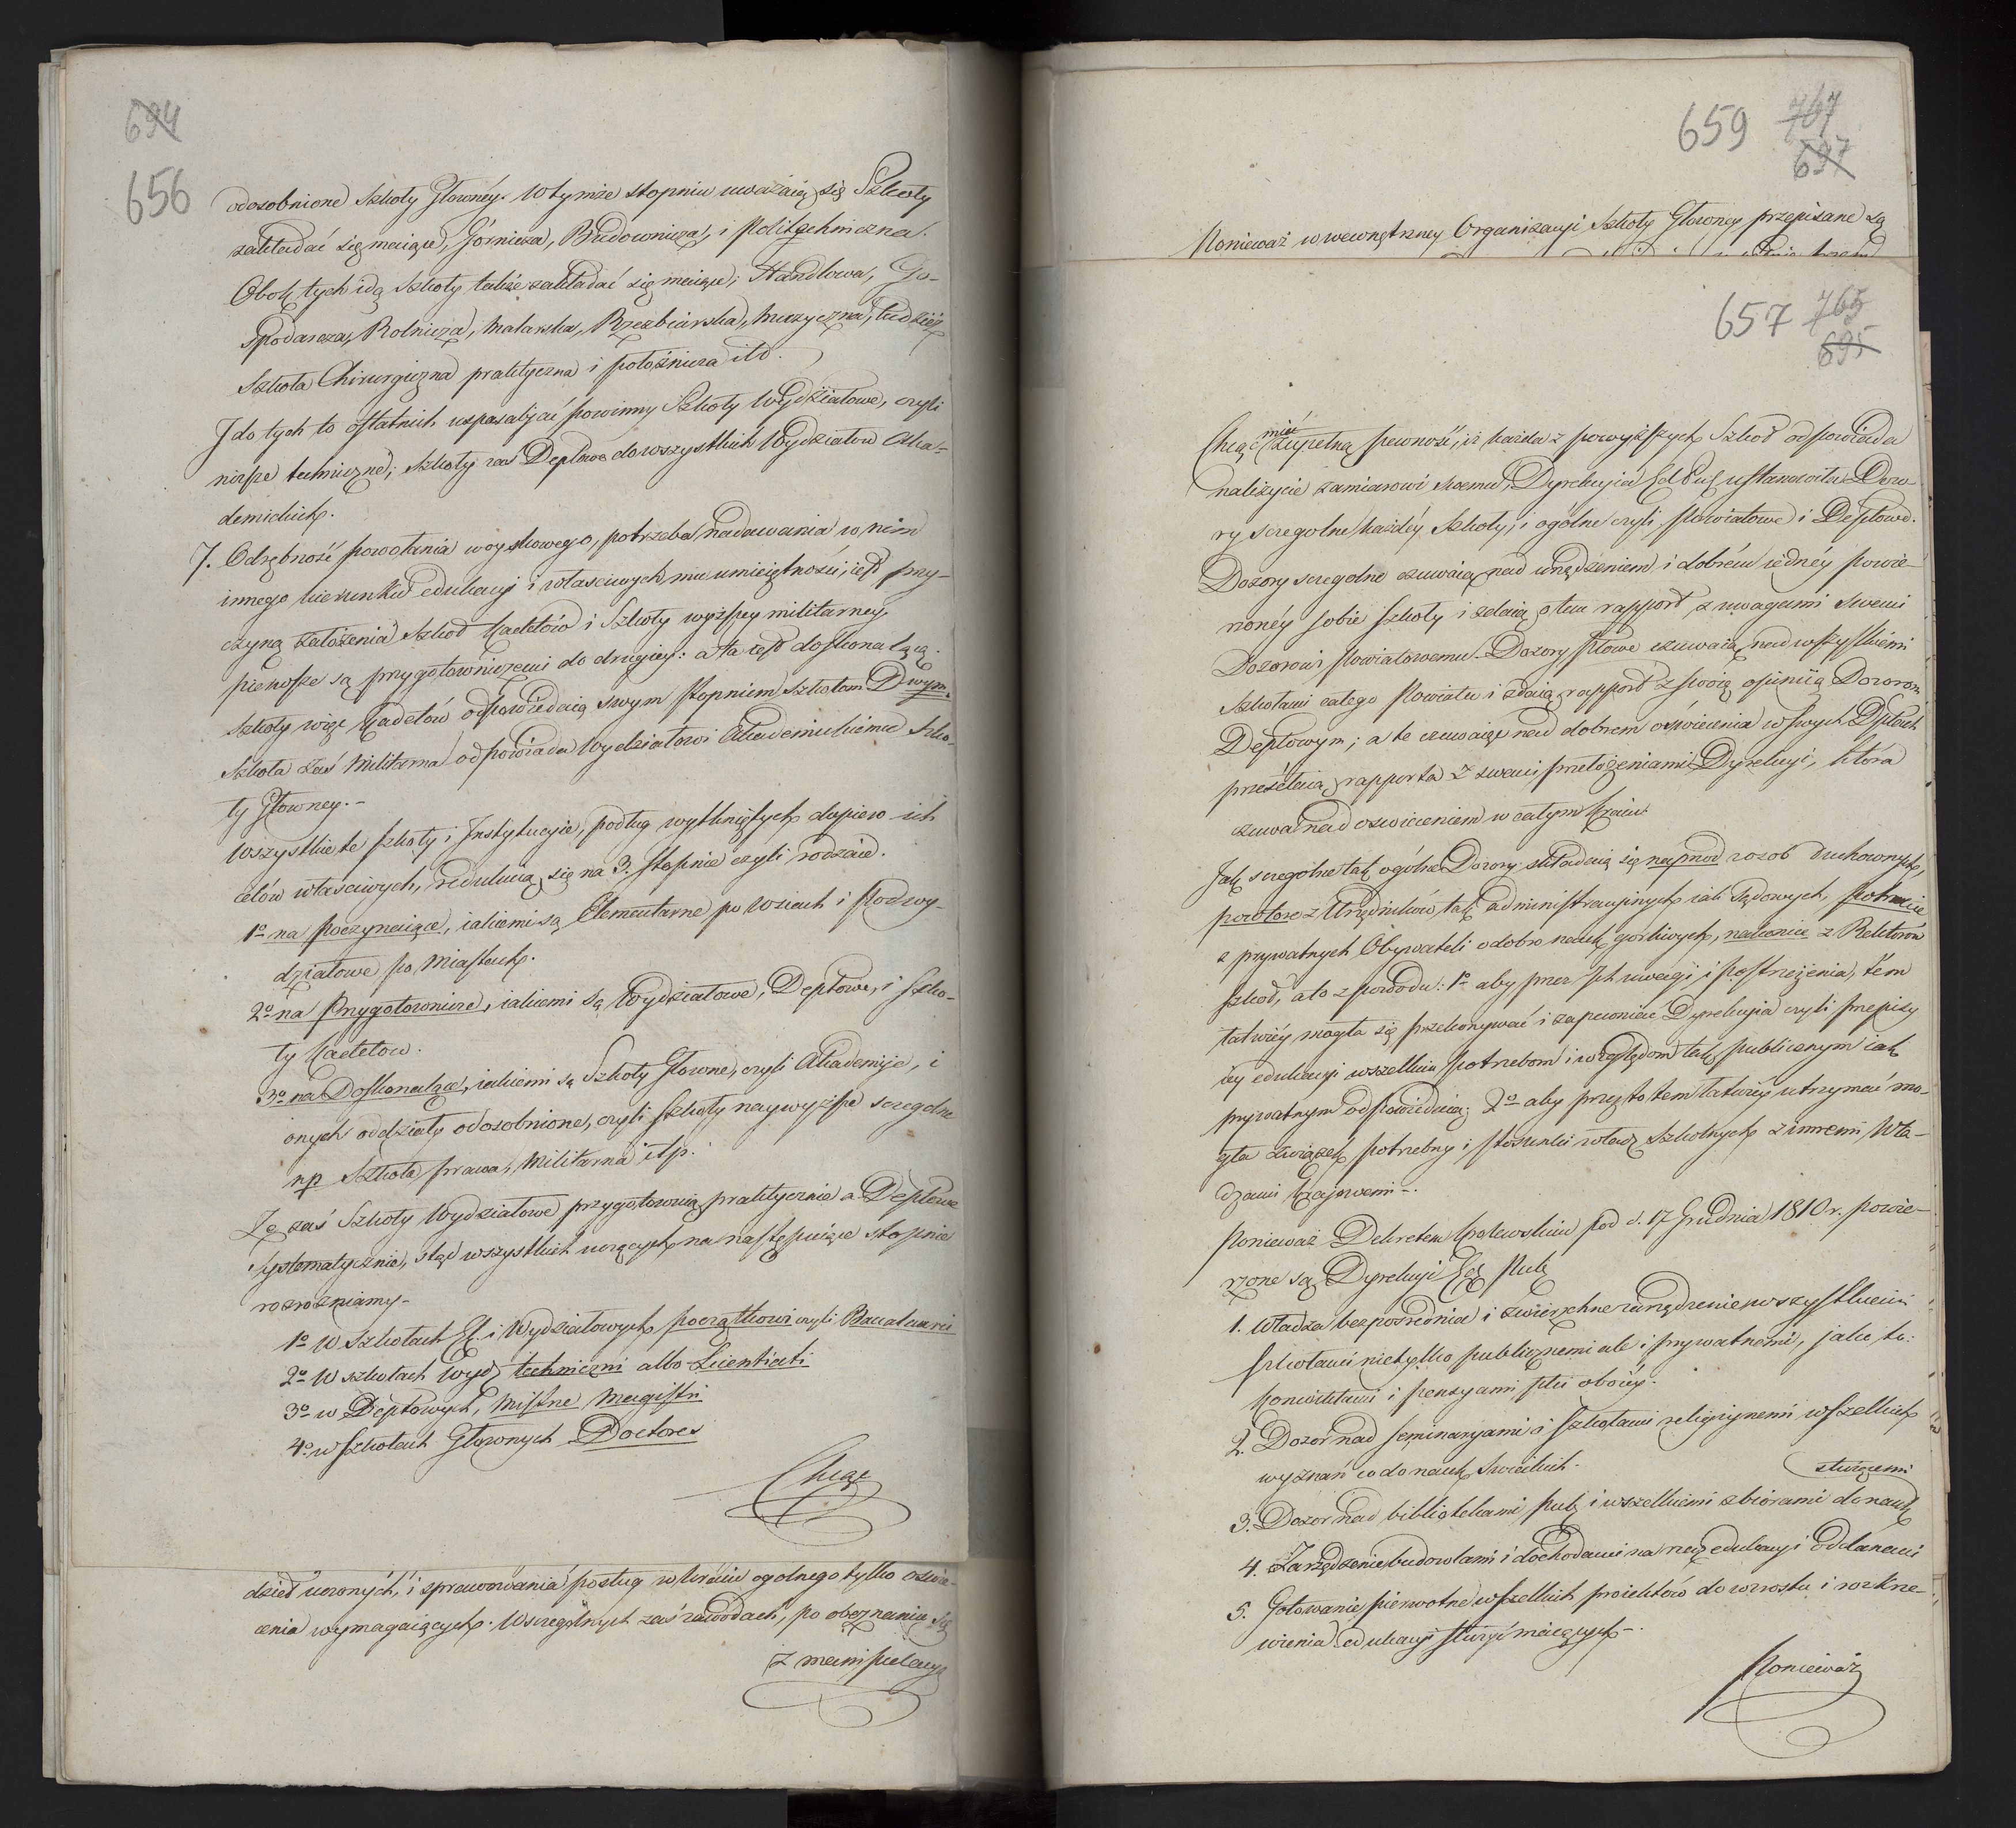 694
656
odosobnione Szkoły Głowney. W tymże stopniu uważaią się Szkoły
zakładać się maiące, Górnicza, Budownicza, i Politechniczna.
Obok tych idą Szkoły także zakładać się maiące; Handlowa, Go-
spodarcza, Rolnicza, Malarska, Rzezbiarska, Muzyczna, tudzież
Szkoła Chirurgiczna praktyczna i położnicza itd.
I do tych to ostatnich usposabijać powinny Szkoły Wydziałowe, czyli
niższe techniczne; Szkoły zas Deptowe do wszystkich Wydziałow Aka-
demickich.
7. Odrębność powołania woyskowego, potrzeba nadawania w nim
innego kierunku edukacyi i właściwych mu umieiętności, iest przy-
czyną założenia Szkoł Kadetów i Szkoły wyższey militarney,
pierwsze są przygotowniczemi do drugiey: a ta iest doskonalącą.
Szkoły więc Kadetów odpowiedaią swym stopniem Szkołom Dwym.
Szkoła zaś Militarna odpowiada Wydziałowi Akademickiemu Szko-
ły Głowney.-
Wszystkie te szkoły i Instytucyie, podług wytkniętych dopiero ich
celów właściwych, redukuią się na 3. stopnie czyli rodzaie.
1o na poczynaiące, iakiemi są Elementarne po Wsiach i Podwy-
działowe po Miastach.
2o na Przygotownicze, iakiemi są Wydziałowe, Deptowe, i Szko-
ły Kadetow.
3o na Doskonalące, iakiemi są Szkoły Głowne, czyli Akademije, i
onych oddziały odosobnione, czyli Szkoły naywyższe scregolne
np Szkoła prawa, Militarna itp.
Ze zaś Szkoły Wydziałowe przygotowuią praktycznie a Deptowe
systematycznie, stąd wszystkich uczących na następuiące stopnie
rozrozniamy-
1o w Szkołach El. i Wydziałowych początkowi czyli Baccalaurei
2o W szkołach Wydz techniczni albo Licentiati
3o w Deptowych, Mistrze Magistri
4o w Szkołach Głownych Doctores
Chcąc
dzieł uczonych, i sprawowania posług w kraiu ogolnego tylko oswie-
cenia wymagaiących. W scregolnych zaś zawodach, po obeznaniu się
z manipulacyą
659 767
697
Ponieważ w wewnętrzney Organizacyi Szkoły Głowney przepisane są
657 765
695
mieć
Chcąc zupełną pewność, iż każda z powyższych Szkoł odpowiada
należycie zamiarowi swemu, Dyrekcyia Ed Pub ustanowiła Dozo-
ry scregolne każdéy Szkoły, i ogólne czyli Powiatowe i Deptowe.
Dozory scregolne czuwaią nad urządzeniem i dobrém iednéy powie-
rzonéy sobie szkoły i zdaią o tem rapport z uwagami swemi
Dozorowi Powiatowemu. Dozory Ptowe czuwaią nad wszystkiémi
Szkołami całego Powiatu i zdaią rapport z swoią opiniią Dozorom
Deptowym; a te czuwaiąc nad dobrem oświecenia w swych Dptach
przesełaią rapporta z swemi przełożeniami Dyrekcyi, która
czuwa nad oswieceniem w całym Kraiu.
Jak scregolne tak ogólne Dozory składaią się naymod z osob duchownych,
powtore z Urzędników tak administracyinych iak Sądowych, potrzecie
z prywatnych Obywateli o dobro nauk gorliwych, nakoniec z Rektorów
szkoł, a to z powodu: 1o aby przez Ich uwagi i postrzeżenia, tém
łatwiéy mogła się przekonywać i zapewniać Dyrekcyia czyli przepisy
iey edukacyi wszelkim potrzebom i względom tak publicznym iak
prywatnym odpowiedaią; 2o aby przez to tem łatwiéy utrzymać mo-
gła związek potrzebny i stosunki władz Szkolnych z innemi Wła-
dzami Kraiowemi-.
Ponieważ Dekretem Krolewskim pod d. 17 Grudnia 1810 r. powie-
rzone są Dyrekcyi Ed Pub
1. Władza bezpośrednia i zwierzchne zarządzenie wszystkiemi
szkołami nietylko publicznemi ale i prywatnemi, jako to:
Konwiktami i pensyami płci oboiéy.
2. Dozor nad seminaryami i szkołami religiynemi wszelkich
wyznań co do nauk Swieckich.
służącemi
3. Dozor nad bibliotekami pub i wszelkiemi zbiorami do nauk
4. Zarządzenie budowlami i dochodami na rzecz edukacyi oddanemi
5. Gotowanie pierwotne wszelkich proiektów do wzrostu i rozkrze-
wienia edukacyi służyć maiących-.
Ponieważ